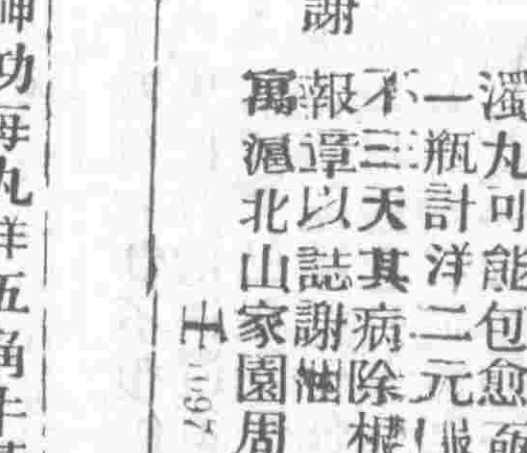 謝
濁丸可能包愈
一瓶計洋二元服
不三天其病除根
報章以誌謝
寓滬北山家園周
王
神功每丸洋五角